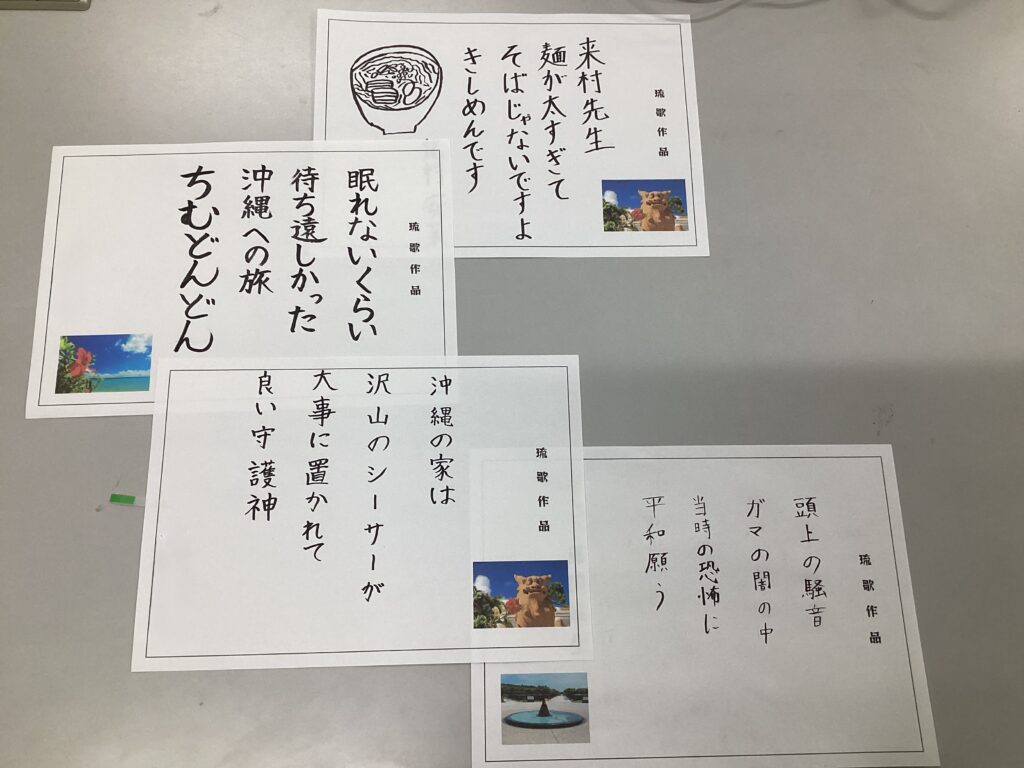 琉歌作品
来村先生
麺が太すぎて
そばじゃないですよ
きしめんです
琉歌作品
眠れないくらい
待ち遠しかった
沖縄への旅
ちむどんどん
琉歌作品
沖縄の家は
沢山のシーサーが
大事に置かれて
良い守護神
琉歌作品
頭上の騒音
ガマの闇の中
当時の恐怖に
平和願う